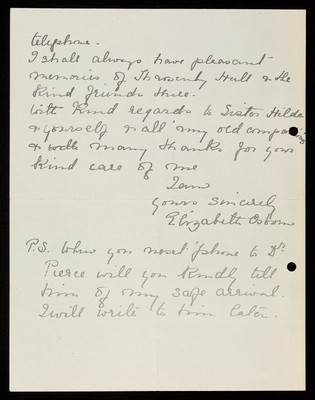 telephone.
I shall always have pleasant
memories of Ticehurst & the
kind friends there.
With kind regards to Sister Hilda
& yourself & all my old companions
& with many thanks for your
kind care of me
I am
yours sincerely
Elizabeth Osborn
P.S. When you next 'phone to Dr.
Pierce will you kindly tell
him of my safe arrival.
I will write to him later.